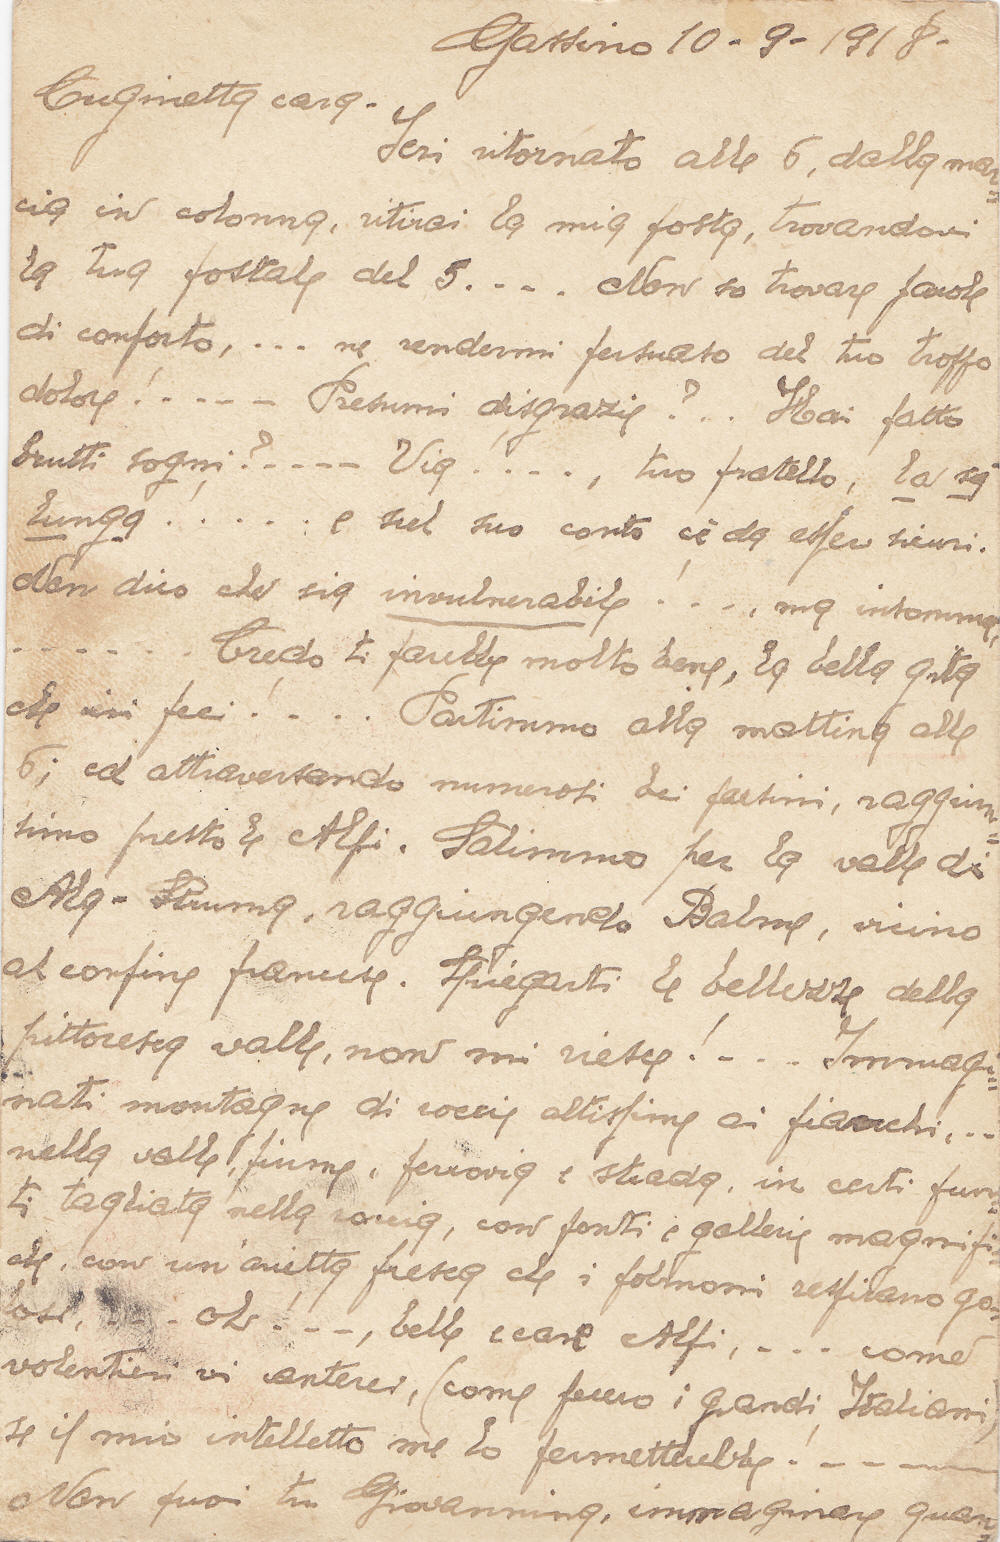 Gassino 10-9-1918-
Cuginetta cara-
Ieri ritornato alle 6, dalla mar=
cia in colonna, ritirai la mia posta, trovandovi
la tua postale del 5.... Non so trovare parole
di conforto, ... ne rendermi persuaso del tuo troppo
dolore!..... Presumi disgrazie?.. Hai fatto
brutti sogni?.... Via!...., tuo fratello, la sa
lunga!..... e sul suo conto c'è da esser sicuri.
Non dico che sia invulnerabile!..., ma insomma,
...... Credo ti farebbe molto bene, la bella gita
che ieri feci!.... Partimmo alla mattina alle
6; ed attraversando numerosi bei paesini, raggiun=
simo presto le Alpi. Salimmo per la valle di
Ala-Stuma, raggiungendo Balme, vicino
al confine francese. Spiegarti le bellezze della
pittoresca valle, non mi riesce!... Immagi=
nati montagne di roccie altissime ai fianchi,..
nella valle, fiume, ferrovia e strada, in certi pun=
ti tagliata nella roccia, con ponti e gallerie magnifi=
che, con un'arietta fresca che i polmoni respirano go=
losi, ... oh!..., belle e care Alpi, .... come
volentieri vi canterei, (come fecero i grandi Italiani)
se il mio intelletto me lo permetterebbe!.....
Non puoi tu Giovannina, immaginare quan=